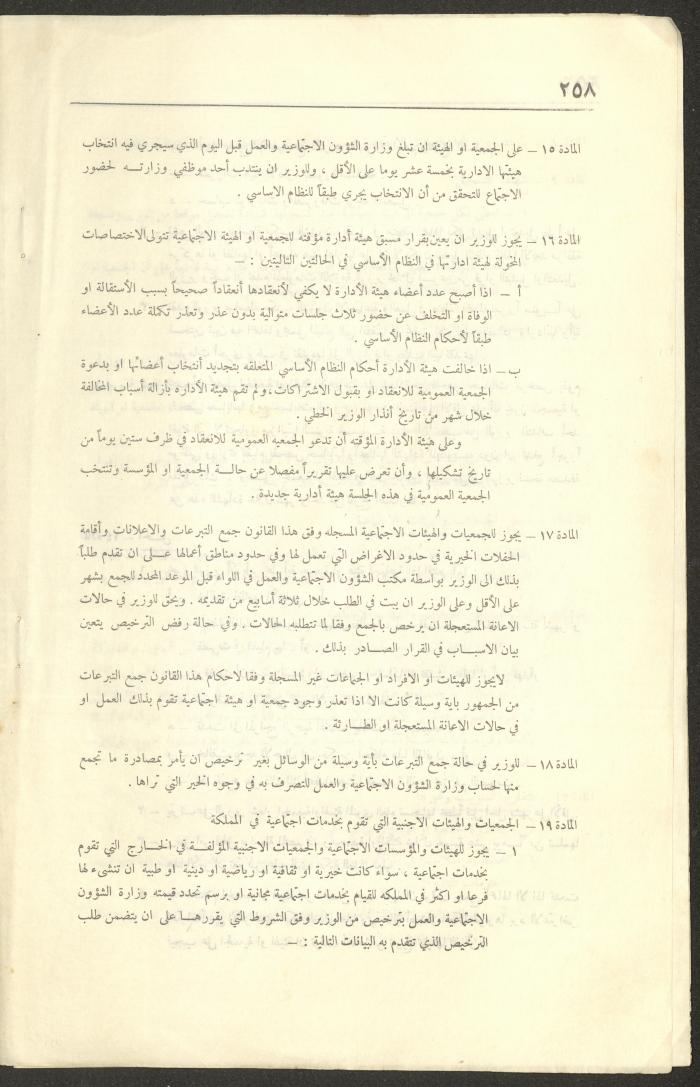 ٢٥٨
المادة ١٥ – على الجمعية او الهيئة ان تبلغ وزارة الشؤون الاجتماعية والعمل قبل اليوم الذي سيجري فيه انتخاب
هيئتها الادارية بخمسة عشر يوما على الأقل ، وللوزير ان ينتدب أحد موظفي وزارتــه لحضور
الاجتماع للتحقق من أن الانتخاب يجري طبقاً للنظام الاساسي .
المادة ١٦ – يجوز للوزير ان يعين بقرار مسبق هيئة أدارة مؤقته للجمعية او الهيئة الاجتماعية تتولى الاختصاصات
المخولة لهيئة ادارتها في النظام الأساسي في الحالتين التاليتين : –
أ – اذا أصبح عدد أعضاء هيئة الأدارة لا يكفي لأنعقادها أنعقاداً صحيحاً بسبب الأستقالة او
الوفاة او التخلف عن حضور ثلاث جلسات متوالية بدون عذر وتعذر تكملة عدد الأعضاء
طبقاً لأحكام النظام الأساسي .
ب – اذا خالفت هيئة الأدارة أحكام النظام الأساسي المتعلقه بتجديد أنتخاب أعضائها او بدعوة
الجمعية العمومية للانعقاد او بقبول الاشتراكات، ولم تقم هيئة الأداره بأزالة أسباب المخالفة
خلال شهر من تاريخ أنذار الوزير الخطي .
وعلى هيئة الأدارة المؤقته أن تدعو الجمعيه العمومية للانعقاد في ظرف ستين يوماً من
تاريخ تشكيلها ، وأن تعرض عليها تقريراً مفصلا عن حالــة الجمعية او المؤسسة وتنتخب
الجمعية العمومية في هذه الجلسة هيئة أدارية جديدة .
المادة ١٧ – يجوز للجمعيات والهيئات الاجتماعية المسجله وفق هذا القانون جمع التبرعات والاعلانات وأقامة
الحفلات الخيرية في حدود الاغراض التي تعمل لها وفي حدود مناطق أعمالها عــلى ان تقدم طلباً
بذلك الى الوزير بواسطة مكتب الشؤون الاجتماعية والعمل في اللواء قبل الموعد المحدد للجمع بشهر
على الأقل وعلى الوزير ان يبت في الطلب خلال ثلاثة أسابيع من تقديمه . ويحق للوزير في حالات
الاعانة المستعجلة ان يرخص بالجمع وفقا لما تتطلبه الحالات . وفي حالة رفض الترخيص يتعين
بيان الاسبــاب في القرار الصــادر بذلك .
لايجوز للهيئات او الافراد او الجماعات غير المسجلة وفقا لاحكام هذا القانون جمع التبرعات
من الجمهور باية وسيلة كانت الا اذا تعذر وجود جمعية او هيئة اجتماعية تقوم بذلك العمل او
في حالات الاعانة المستعجلة او الطــارئة .
المادة ١٨ – للوزير في حالة جمع التبرعات بأية وسيلة من الوسائل بغير ترخيص ان يأمر بمصادرة ما تجمع
منها لحساب وزارة الشؤون الاجتماعية والعمل للتصرف به في وجوه الخير التي تراها .
المادة ١٩ – الجمعيات والهيئات الاجنبية التي تقوم بخدمات اجتماعية في المملكة
١ – يجوز للهيئات والمؤسسات الاجتماعية والجمعيات الاجنبية المؤلفــة في الخــارج التي تقوم
بخدمات اجتماعية ، سواء كانت خيرية او ثقافية او رياضية او دينية او طبية ان تنشىء لها
فرعا او اكثر في المملكه للقيام بخدمات اجتماعية مجانية او برسم تحدد قيمته وزارة الشؤون
الاجتماعية والعمل بترخيص من الوزير وفق الشروط التي يقررهــا على ان يتضمن طلب
الترخيص الذي تتقدم به البيانات التالية : –